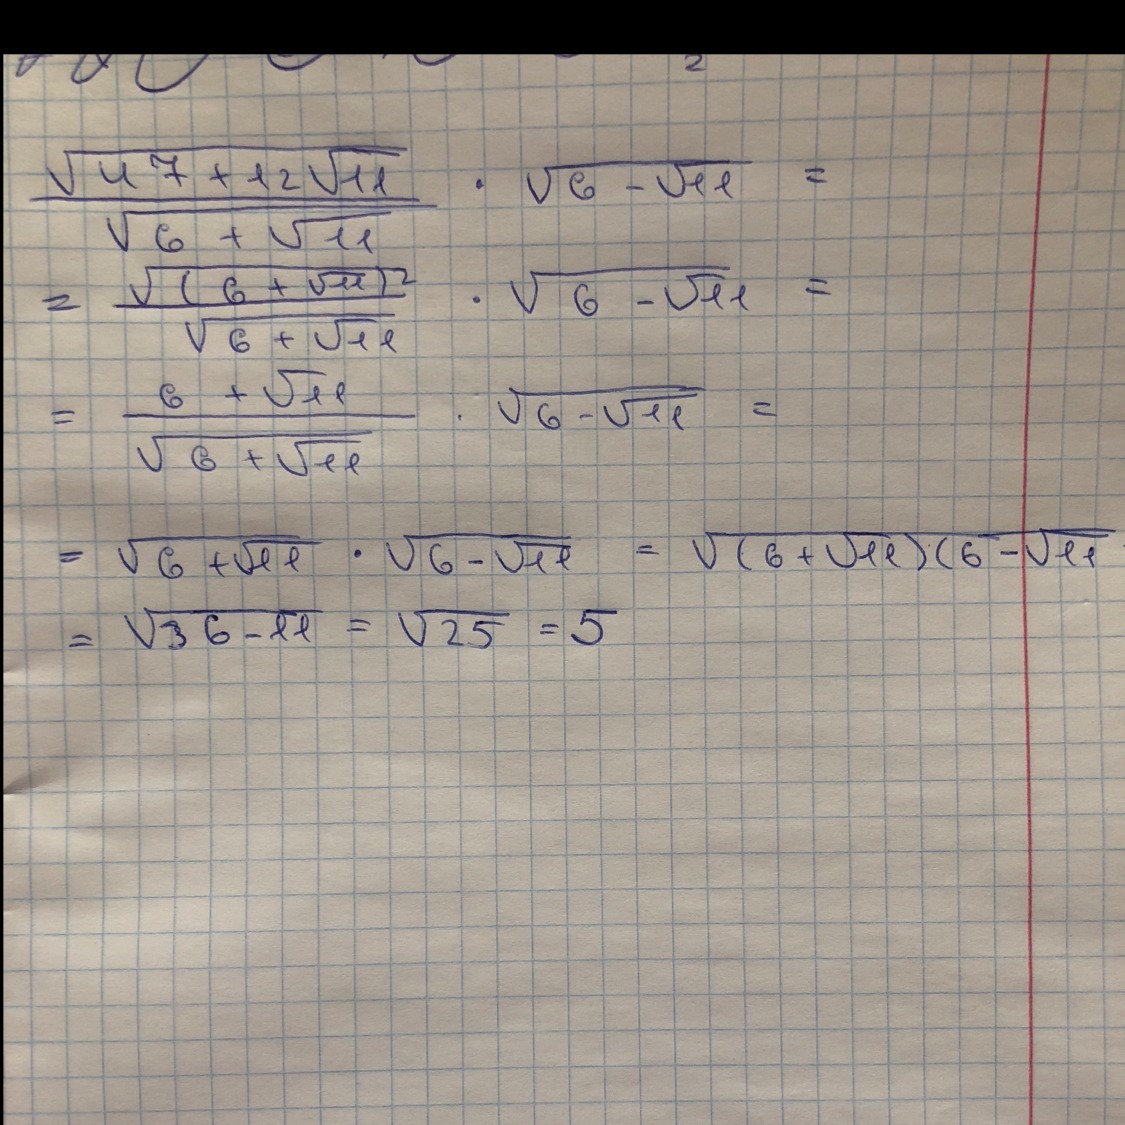 2
√(47 + 12√11) / √(6 + √11) · √(6 - √11) =
= √((6 + √11)²) / √(6 + √11) · √(6 - √11) =
= (6 + √11) / √(6 + √11) · √(6 - √11) =
= √(6 + √11) · √(6 - √11) = √((6 + √11)·(6 - √11
= √(36 - 11) = √25 = 5